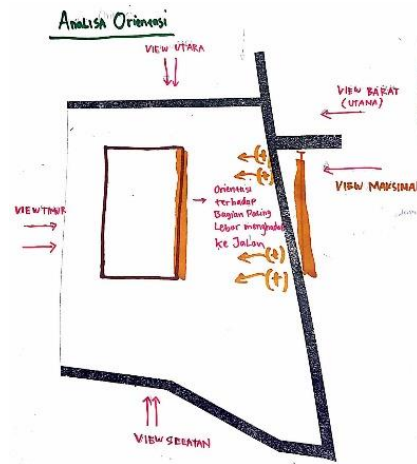 Analisa Orientasi
VIEW UTARA
VIEW BARAT
(UTAMA)
(+)
(+)
VIEW MAKSIMAL
Orientasi
terhadap
Bagian Paling
Lebar menghadap
ke Jalan
VIEW TIMUR
(+)
(+)
VIEW SELATAN